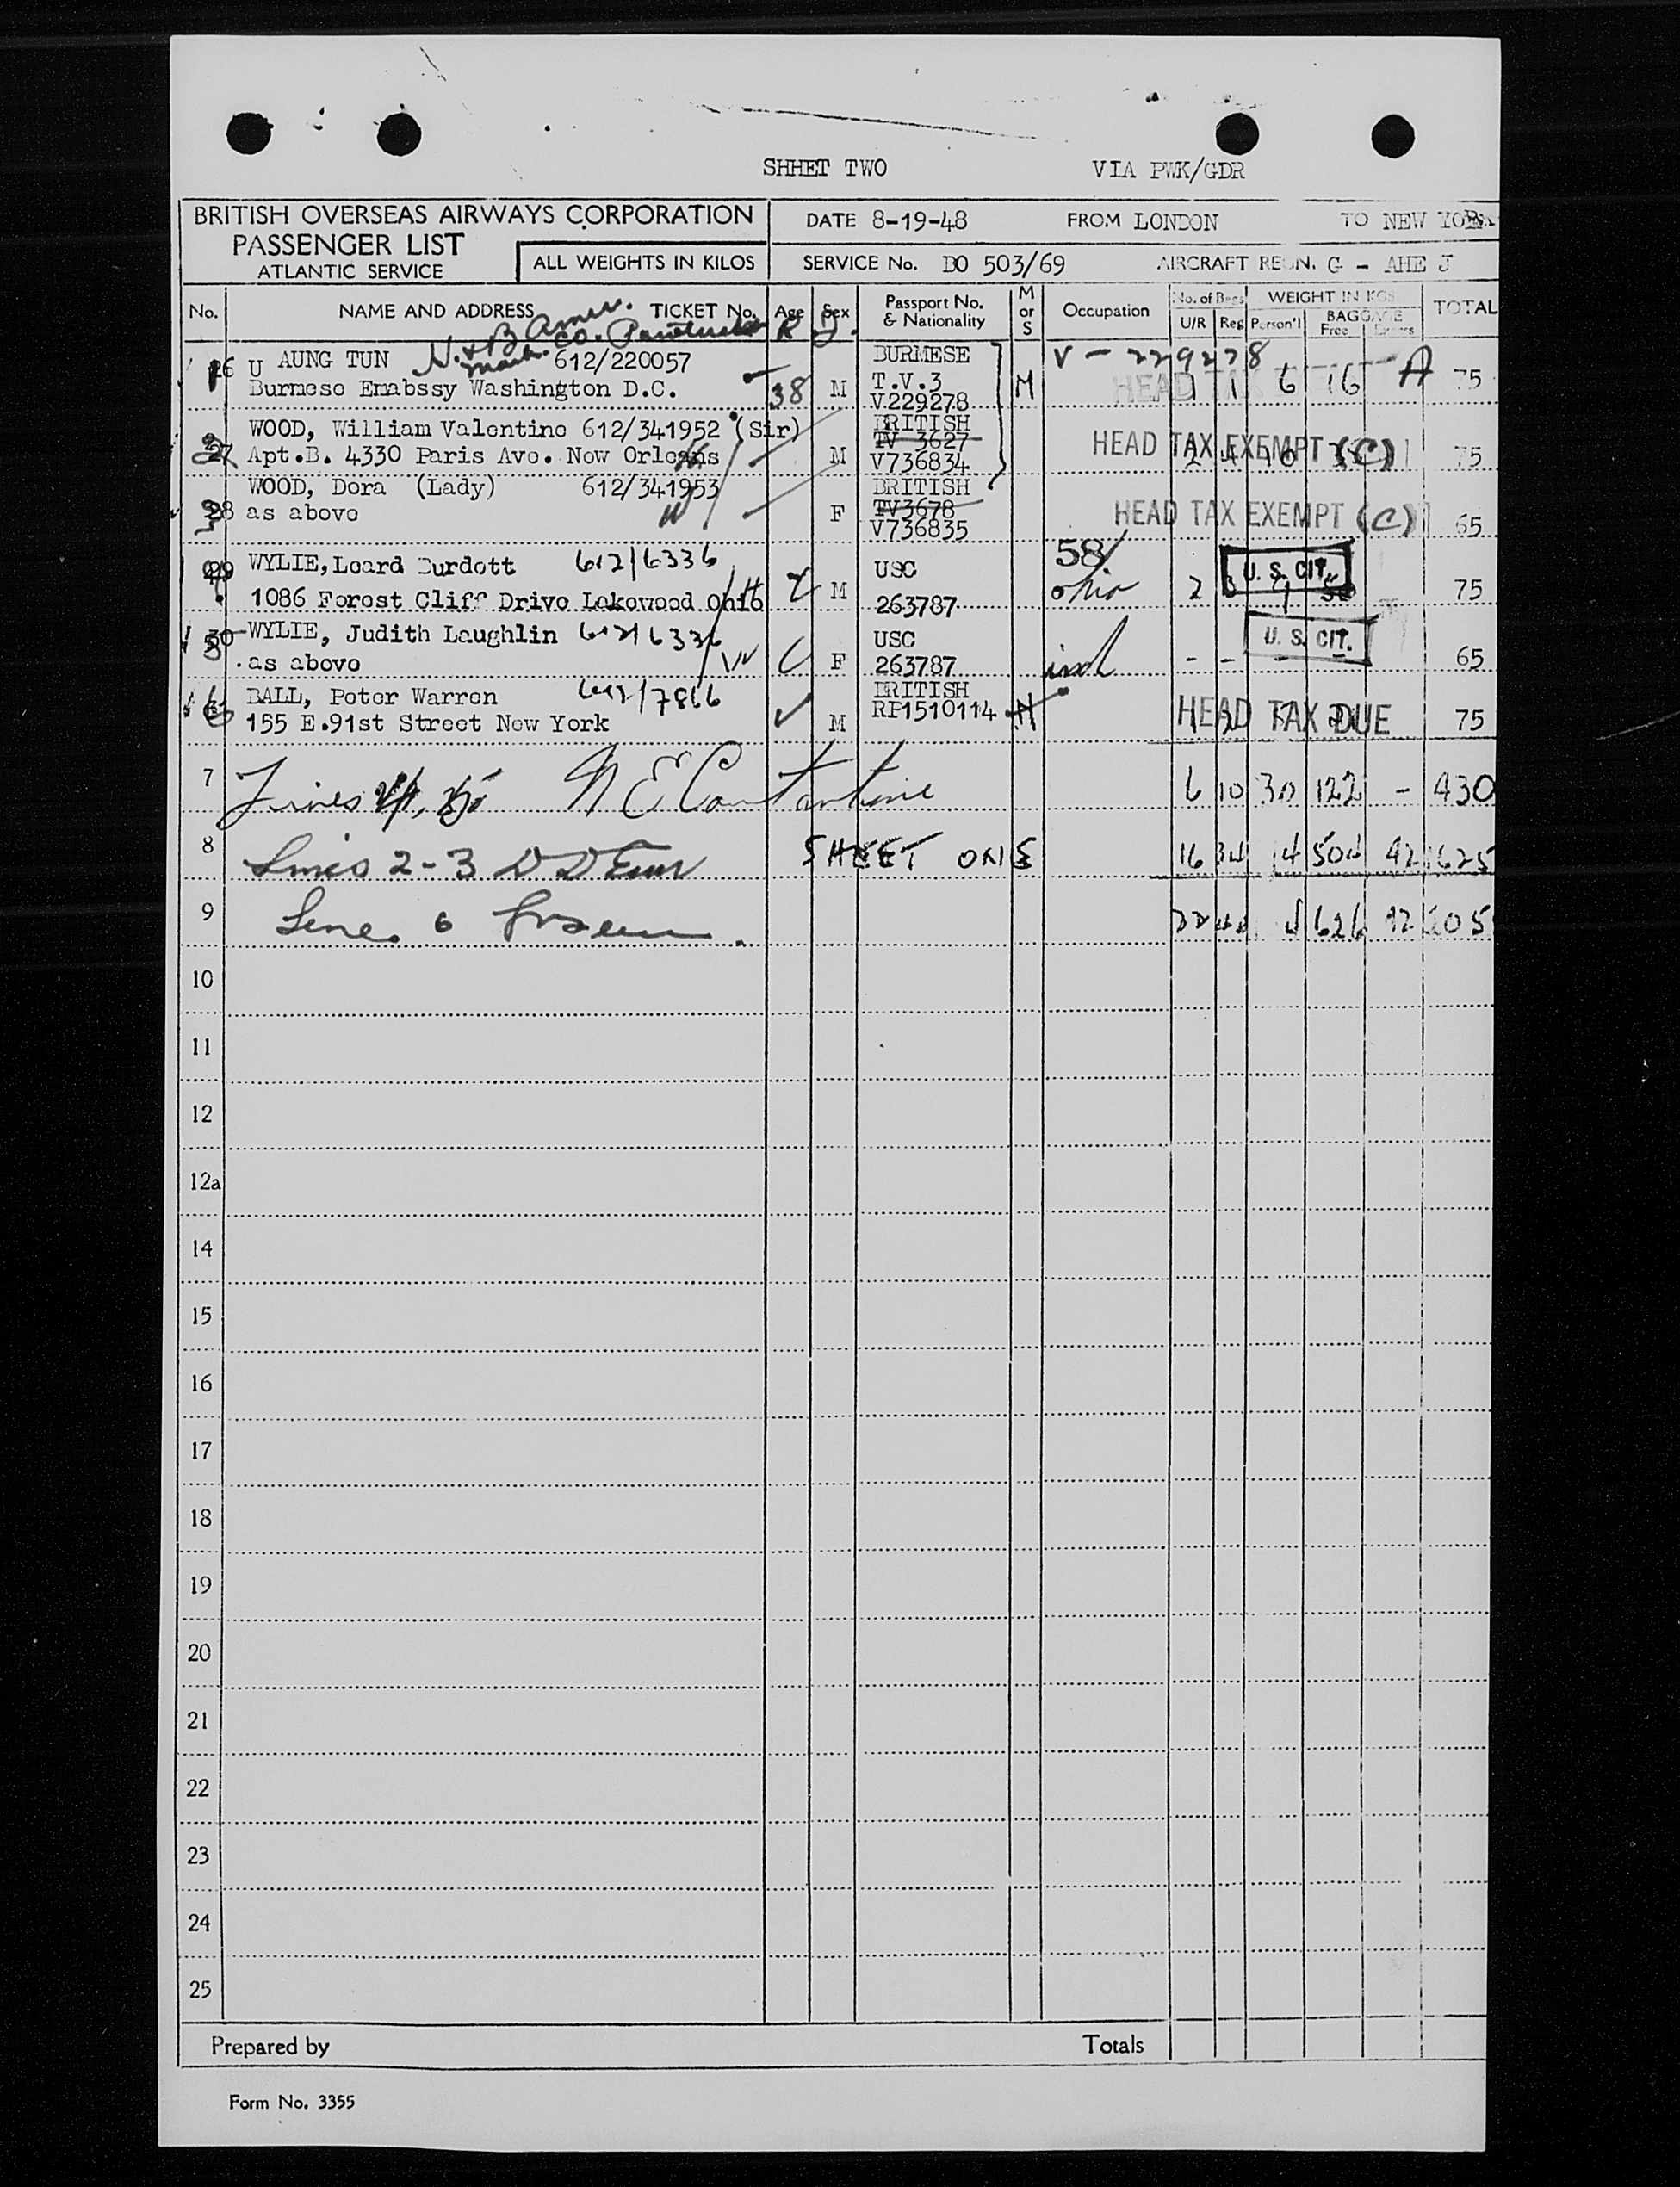 SHHET TWO VIA PWK/GDR
BRITISH OVERSEAS AIRWAYS CORPORATION DATE 8-19-48 FROM LONDON TO NEW YORK
PASSENGER LIST
ATLANTIC SERVICE ALL WEIGHTS IN KILOS SERVICE No. BO 503/69 AIRCRAFT REGN. G - AHE J
No. NAME AND ADDRESS TICKET No. Age Sex Passport No. & Nationality M or S Occupation No. of Bags U/R Reg WEIGHT IN KGS Person'l BAGGAGE Free TOTAL
N. & B Amer.
Co.
26 U AUNG TUN 612/220057 BURMESE V - 229278
Burmese Emabssy Washington D.C. 38 M T.V.3 M HEAD TAX 1 1 6 16 - A 75
V.229278
WOOD, William Valentine 612/341952 (Sir) BRITISH
27 Apt.B. 4330 Paris Ave. New Orleans M TV 3627 HEAD TAX EXEMPT (C) 75
V736834
WOOD, Dora (Lady) 612/341953 BRITISH
28 as above F TV3678 HEAD TAX EXEMPT (C) 65
V736835
29 WYLIE, Loard Burdett 612/6336 USC 58 U. S. CIT.
1086 Forest Cliff Drive Lakewood Ohio M 263787 Ohio 2 3 75
30 WYLIE, Judith Laughlin 612/6336 USC U. S. CIT.
5 as above W F 263787 - - 65
6 BALL, Peter Warren 612/7866 BRITISH
155 E.91st Street New York M RP1510114 HEAD TAX DUE 75
7 Lines N E 6 10 30 122 - 430
8 Lines 2-3 SHEET ONE 16 34 504 92 1625
9 Line 6 626 92
10
11
12
12a
14
15
16
17
18
19
20
21
22
23
24
25
Prepared by Totals
Form No. 3355